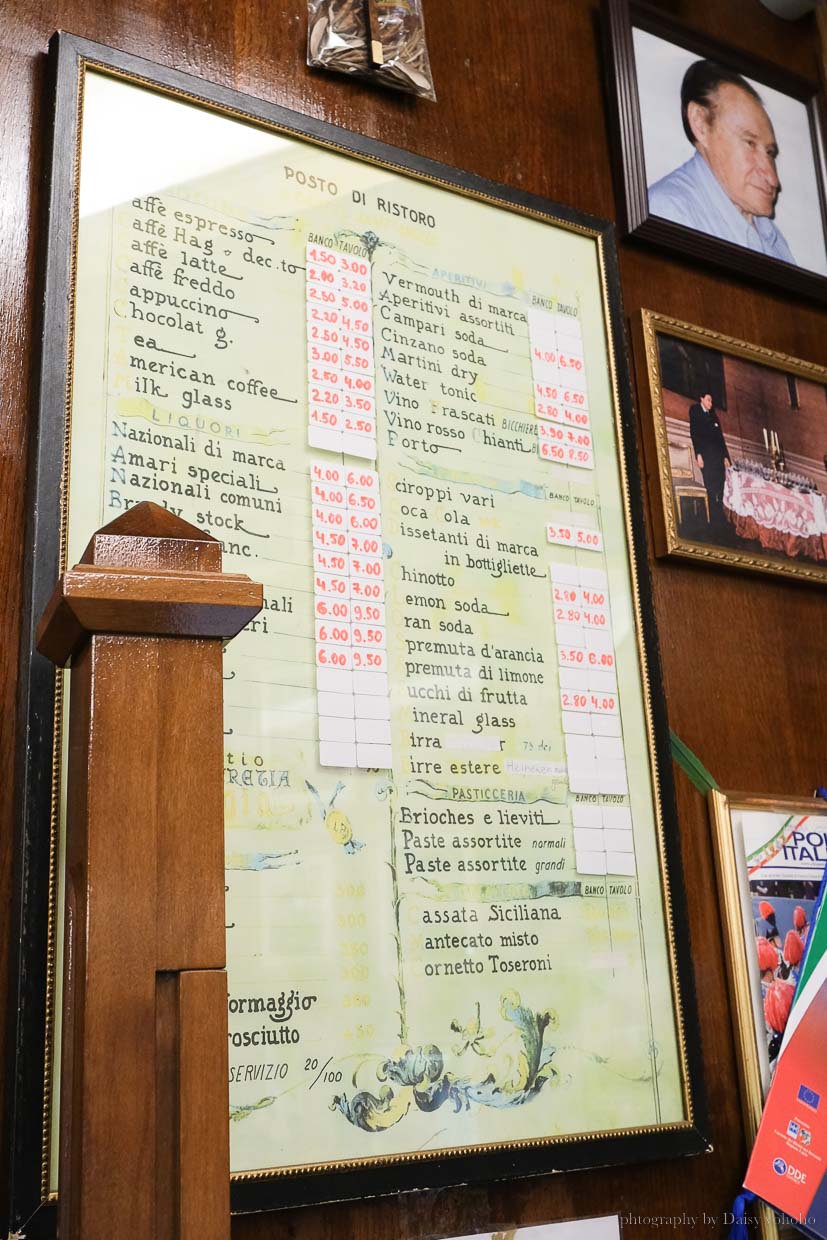 POSTO DI RISTORO
BANCO TAVOLO
affè espresso 1.50 3.00
affè Hag o dec.to 2.00 3.20
affè latte 2.50 5.00
affè freddo 2.20 4.50
appuccino 2.50 4.50
hocolat g. 3.00 5.50
ea 2.50 4.00
merican coffee 2.20 3.50
ilk glass 1.50 2.50
LIQUORI
Nazionali di marca 4.00 6.00
Amari speciali 4.00 6.50
Nazionali comuni 4.00 6.00
stock 4.50 7.00
anc. 4.50 7.00
4.50 7.00
nali 6.00 9.50
eri 6.00 9.50
6.00 9.50
tio
RETIA
500
500
250
300
formaggio 350
rosciutto
SERVIZIO 20/100
APERITIVI
BANCO TAVOLO
Vermouth di marca
Aperitivi assortiti
Campari soda 4.00 6.50
Cinzano soda
Martini dry 4.50 6.50
Water tonic 2.80 4.00
Vino Frascati BICCHIERE 3.90 7.00
Vino rosso Chianti 6.50 8.50
Porto
BANCO TAVOLO
Sciroppi vari
oca Cola 3.50 5.00
issetanti di marca
in bottigliette
hinotto 2.80 4.00
emon soda 2.80 4.00
ran soda
premuta d'arancia 3.50 6.00
premuta di limone
ucchi di frutta 2.80 4.00
ineral glass
irra
irre estere Heineken
PASTICCERIA
BANCO TAVOLO
Brioches e lieviti
Paste assortite normali
Paste assortite grandi
BANCO TAVOLO
Cassata Siciliana
Mantecato misto
Cornetto Toseroni
POL
ITAL
DDE
photography by Daisyyohoho